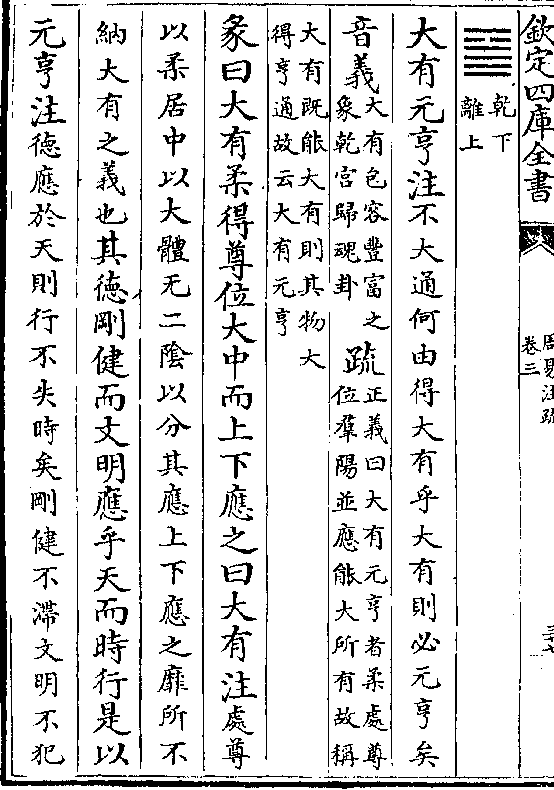 欽定四庫全書
周易注疏
卷三
乾下
離上
大有元亨注不大通何由得大有乎大有則必元亨矣
音義大有包容豐富之
象乾宮歸魂卦
疏正義曰大有元亨者柔處尊
位羣陽並應能大所有故稱
大有既能大有則其物大
得亨通故云大有元亨
彖曰大有柔得尊位大中而上下應之曰大有注處尊
以柔居中以大體无二陰以分其應上下應之靡所不
納大有之義也其德剛健而文明應乎天而時行是以
元亨注德應於天則行不失時矣剛健不滯文明不犯